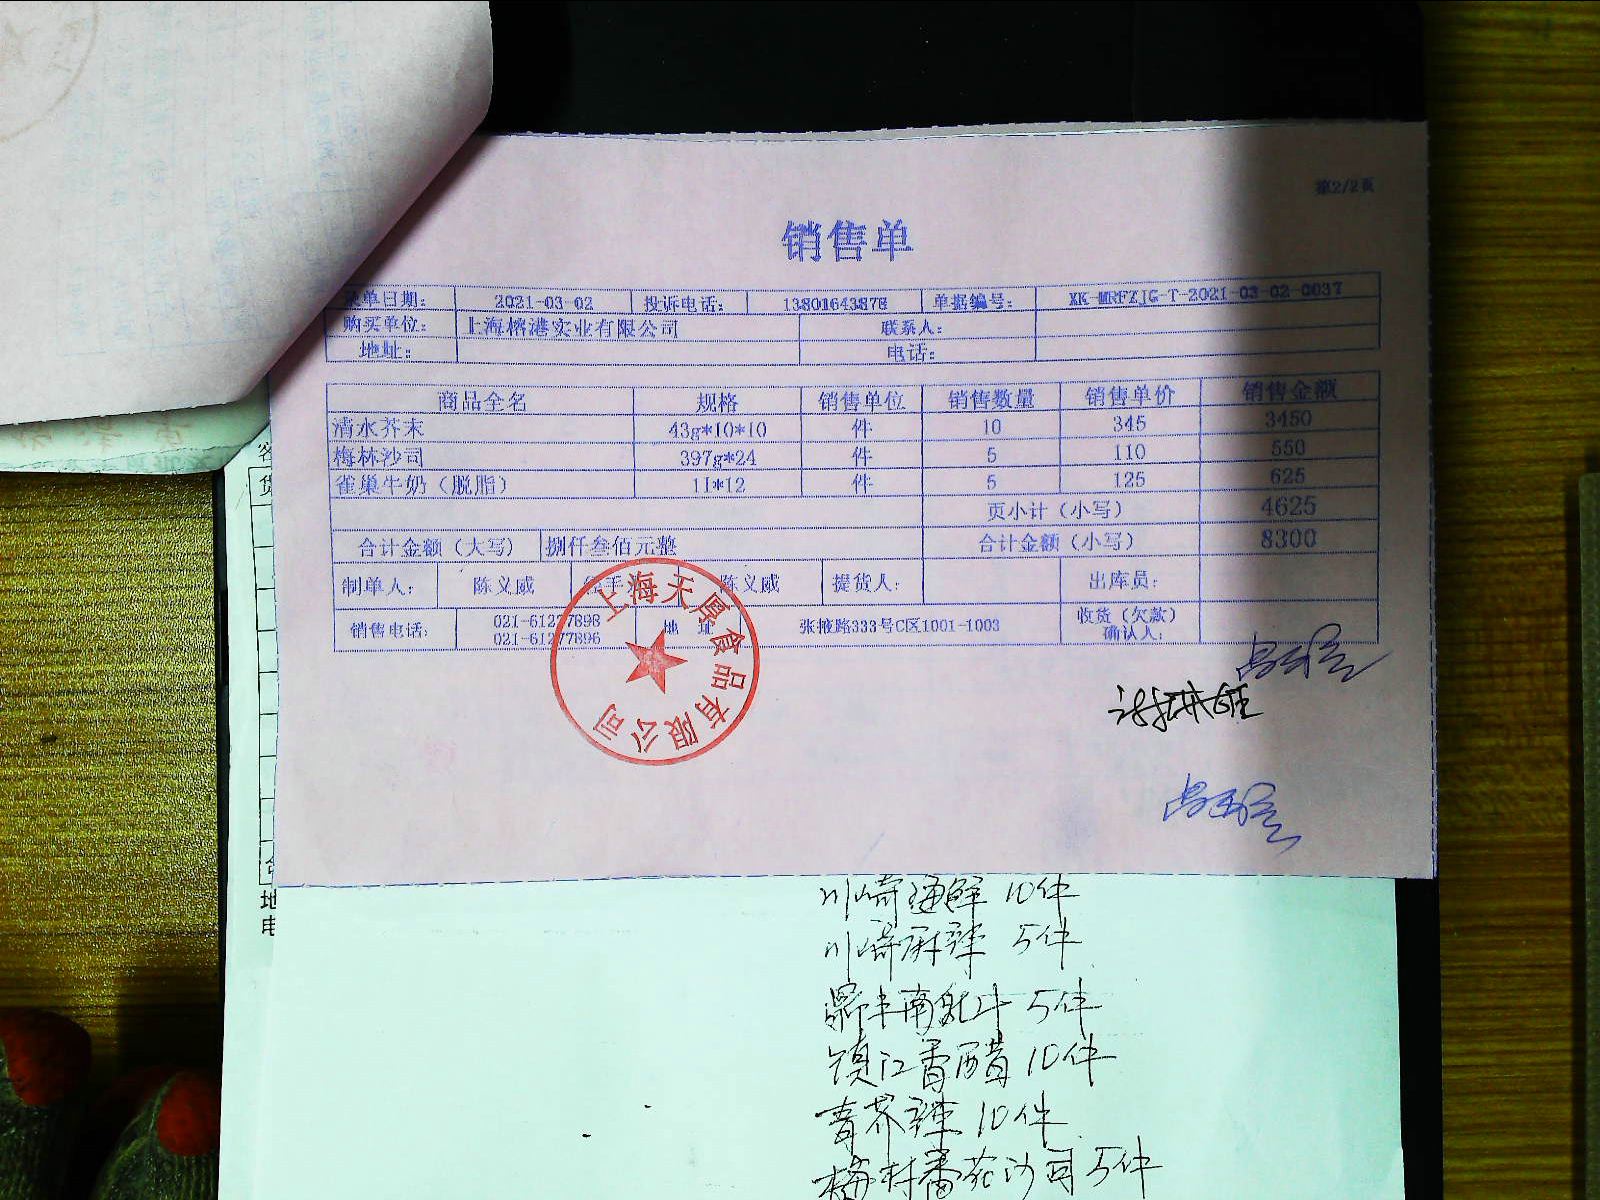 第2/2页
销售单
录单日期： 2021-03-02 投诉电话： 13801643878 单据编号： XK-MRFZJG-T-2021-03-02-0037
购买单位： 上海榕港实业有限公司 联系人：
地址： 电话：
商品全名 规格 销售单位 销售数量 销售单价 销售金额
清水芥末 43g*10*10 件 10 345 3450
梅林沙司 397g*24 件 5 110 550
雀巢牛奶（脱脂） 1l*12 件 5 125 625
页小计（小写） 4625
合计金额（大写） 捌仟叁佰元整 合计金额（小写） 8300
制单人： 陈义威 经手 陈义威 提货人： 出库员：
销售电话： 021-61277898 021-61277896 地 址 张掖路333号C区1001-1003 收货（欠款）确认人：
上海天厚食品有限公司
客
货
合
地
电
川崎海鲜 10件
川崎麻辣 5件
鼎丰南乳汁 5件
镇江香醋 10件
青芥辣 10件
梅林番茄沙司 5件